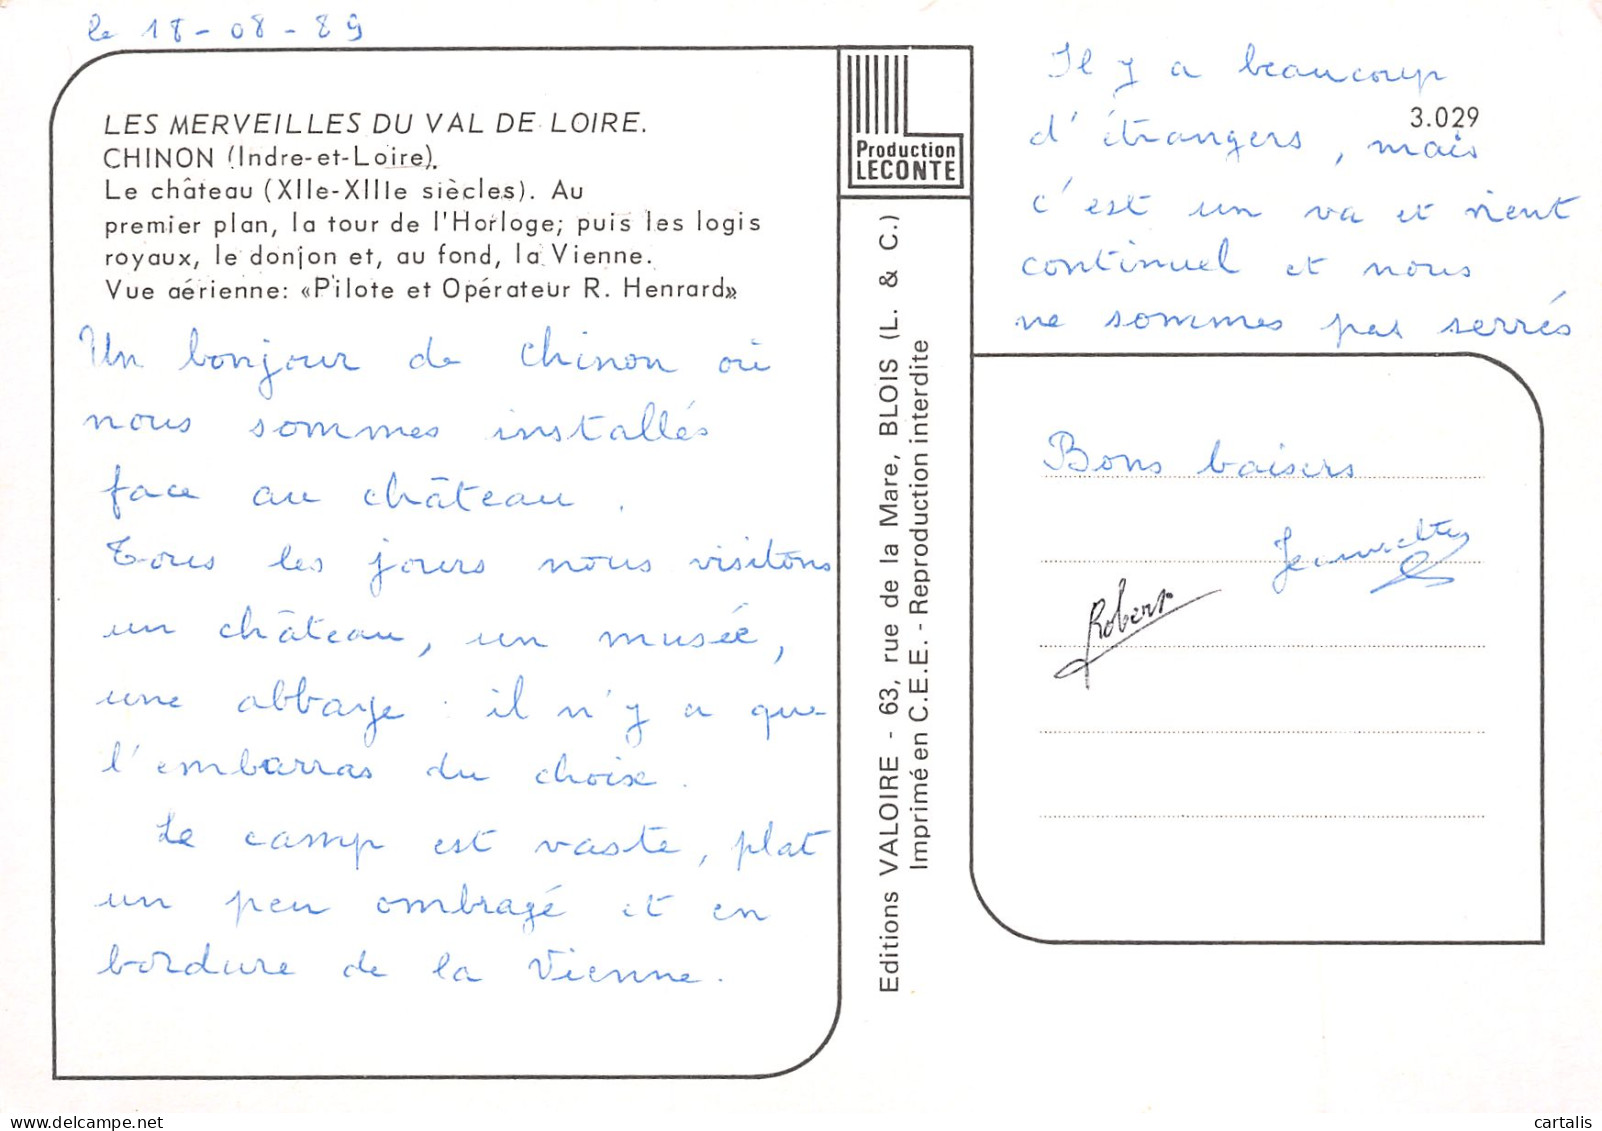 le 18-08-89
LES MERVEILLES DU VAL DE LOIRE.
CHINON (Indre-et-Loire).
Le château (XIIe-XIIIe siècles). Au
premier plan, la tour de l'Horloge; puis les logis
royaux, le donjon et, au fond, la Vienne.
Vue aérienne: «Pilote et Opérateur R. Henrard»
Un bonjour de Chinon où
nous sommes installés
face au château.
Tous les jours nous visitons
un château, un musée,
une abbaye : il n'y a que
l'embarras du choix.
Le camp est vaste, plat
un peu ombragé et en
bordure de la Vienne.
Production
LECONTE
Editions VALOIRE - 63, rue de la Mare, BLOIS (L. & C.)
Imprimé en C.E.E. - Reproduction interdite
3.029
Il y a beaucoup
d'étrangers, mais
c'est un va et vient
continuel et nous
ne sommes pas serrés
Bons baisers
Jeannette
Robert
cartalis